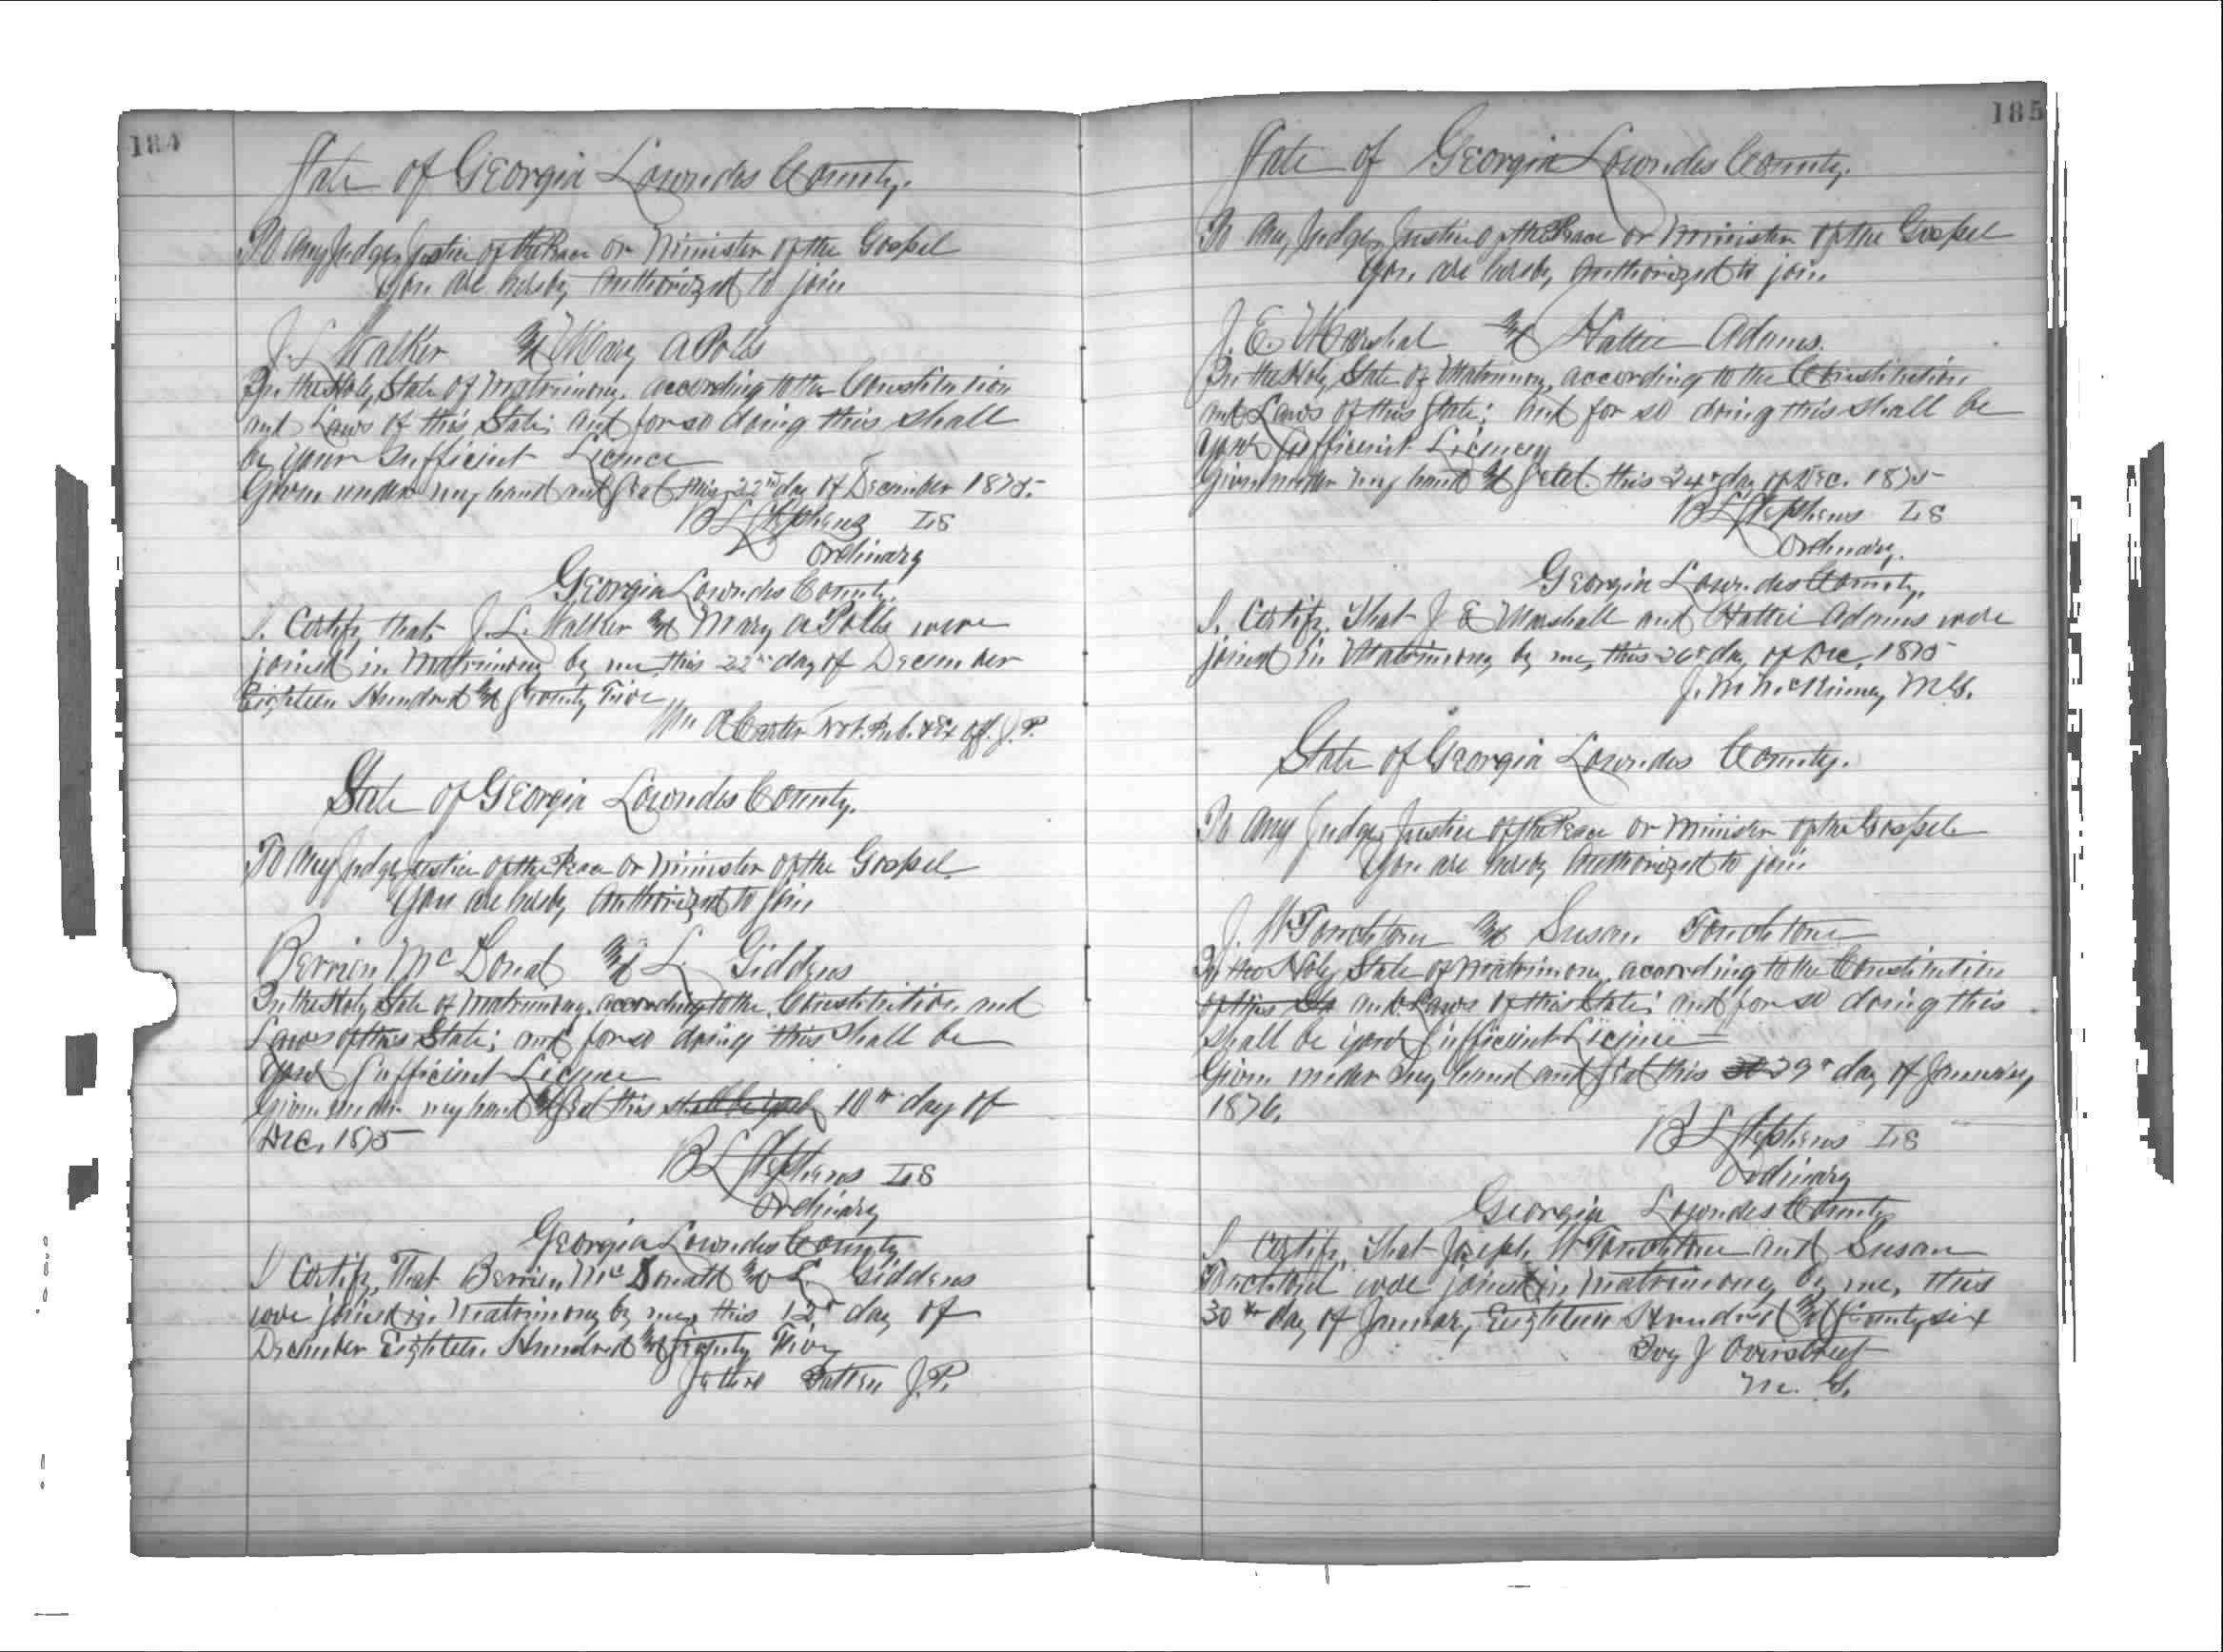 184
State of Georgia Lowndes County.
To Any Judge, Justice of the Peace or Minister of the Gospel
You are hereby Authorized to join
J. L Walker & Mary A Polls
In the Holy State of Matrimony, according to the Constitution
and Laws of this State; and for so doing this shall
be your Sufficient Licence
Given under my hand and Seal this 22nd day of December 1875.
B L Stephens LS
Ordinary
Georgia Lowndes County.
I. Certify that J. L. Walker & Mary A Polls were
joined in Matrimony by me this 22nd day of December
Eighteen Hundred & Seventy Five
Wm A Carter Not. Pub. & Ex off. J. P.
State of Georgia Lowndes County.
To Any Judge Justice of the Peace or Minister of the Gospel
You are hereby Authorized to join
Berrien McDonal & L. Giddens
In the Holy State of Matrimony, according to the Constitution and
Laws of this State; and for so doing this shall be
your Sufficient Licence
Given under my hand & Seal this shall be your 10th day of
Dec. 1875
B L Stephens LS
Ordinary
Georgia Lowndes County
I Certify, That Berrien McDonald & L. Giddens
were joined in Matrimony by me, this 12th day of
December Eighteen Hundred & Seventy Five
Jethro Patten J. P.
185
State of Georgia Lowndes County.
To Any Judge, Justice of the Peace or Minister of the Gospel
You are hereby Authorized to join
J. E. Marshal & Hattie Adams.
In the Holy State of Matrimony, according to the Constitution
and Laws of this State; and for so doing this shall be
your Sufficient Licence
Given under my hand & Seal this 24th day of Dec. 1875
B L Stephens LS
Ordinary.
Georgia Lowndes County.
I, Certify, That J E Marshall and Hattie Adams were
joined in Matrimony by me, this 26th day of Dec. 1875
J. M McKinney, M G.
State of Georgia Lowndes County.
To Any Judge, Justice of the Peace or Minister of the Gospel
You are hereby Authorized to join
J. W Touchtone & Susan Touchtone
In the Holy State of Matrimony, according to the Constitution
of this St and Laws of this State; and for so doing this
shall be your Sufficient Licence
Given under my hand and Seal this 29th day of January,
1876.
B L Stephens LS
Ordinary
Georgia Lowndes County
I Certify, That Joseph W Touchtone and Susan
Touchtone were joined in Matrimony by me, this
30th day of January Eighteen Hundred & Seventy six
Ivy J Overstreet
M. G.